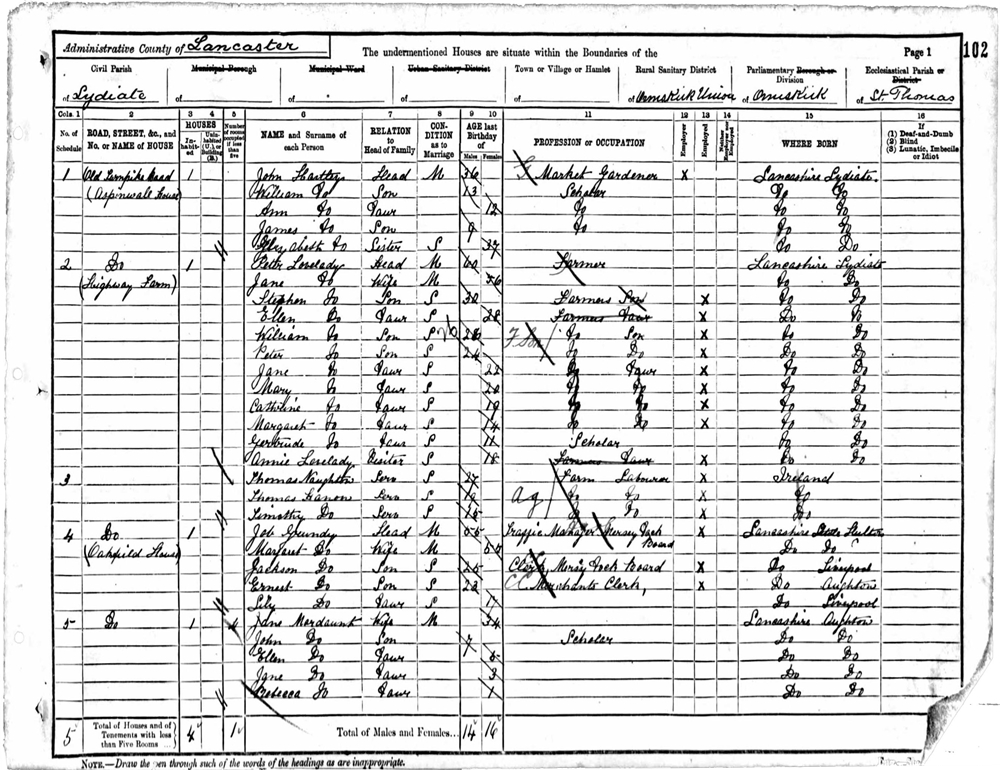 Administrative County of Lancaster
The undermentioned Houses are situate within the Boundaries of the
Page 1
102
Civil Parish
Municipal Borough
Municipal Ward
Urban Sanitary District
Town or Village or Hamlet
Rural Sanitary District
Parliamentary Borough or Division
Ecclesiastical Parish or District
of Lydiate
of
of
of
of
of Ormskirk Union
of Ormskirk
of St. Thomas
Cols. 1 2 3 4 5 6 7 8 9 10 11 12 13 14 15 16
No. of Schedule
ROAD, STREET, &c., and No. or NAME of HOUSE
HOUSES
Inhabited
Uninhabited (U.) or Building (B.)
Number of rooms occupied if less than five
NAME and Surname of each Person
RELATION to Head of Family
CONDITION as to Marriage
AGE last Birthday of
Males
Females
PROFESSION or OCCUPATION
Employer
Employed
Neither Employer nor Employed
WHERE BORN
If
(1) Deaf-and-Dumb
(2) Blind
(3) Lunatic, Imbecile or Idiot
1 Old Turnpike Road 1 John Head M 36 Market Gardener X Lancashire Lydiate
(Aspinwall House) William Do Son 13 Scholar Do Do
Ann Do Daur 12 Do Do Do
James Do Son 9 Do Do Do
Elizabeth Do Sister S 37 Do Do
2 Do 1 Peter Lovelady Head M 60 Farmer Lancashire Lydiate
(Highway Farm) Jane Do Wife M 56 Do Do
Stephen Do Son S 30 Farmers Son X Do Do
Ellen Do Daur S 28 Farmers Daur X Do Do
William Do Son S 26 F Son Do Son X Do Do
Peter Do Son S 24 Do Do X Do Do
Jane Do Daur S 22 Do Daur X Do Do
Mary Do Daur S 20 Do Do X Do Do
Catherine Do Daur S 19 Do Do X Do Do
Margaret Do Daur S 14 Do Do X Do Do
Gertrude Do Daur S 11 Scholar Do Do
Annie Lovelady Visitor S 18 Farmers Daur X Do Do
3 Thomas Naughton Serv S 27 Farm Labourer X Ireland
Thomas Serv S 19 Ag Do Do X Do
Timothy Do Serv S 25 Do Do X Do
4 Do 1 Job Grundy Head M 55 Traffic Manager Mersey Dock Board X Lancashire
(Oakfield House) Margaret Do Wife M Do Do
Jackson Do Son S 25 Clerk, Mersey Dock Board X Do Liverpool
Ernest Do Son S 22 C.C. Merchants Clerk, X Do Aughton
Lily Do Daur S 17 Do Liverpool
5 Do 1 4 Jane Mordaunt Wife M 34 Lancashire Aughton
John Do Son 7 Scholar Do Do
Ellen Do Daur 5 Do Do
Jane Do Daur 3 Do Do
Rebecca Do Daur 1 Do Do
5 Total of Houses and of Tenements with less than Five Rooms ... 4 1 Total of Males and Females... 14 16
NOTE.—Draw the pen through such of the words of the headings as are inappropriate.